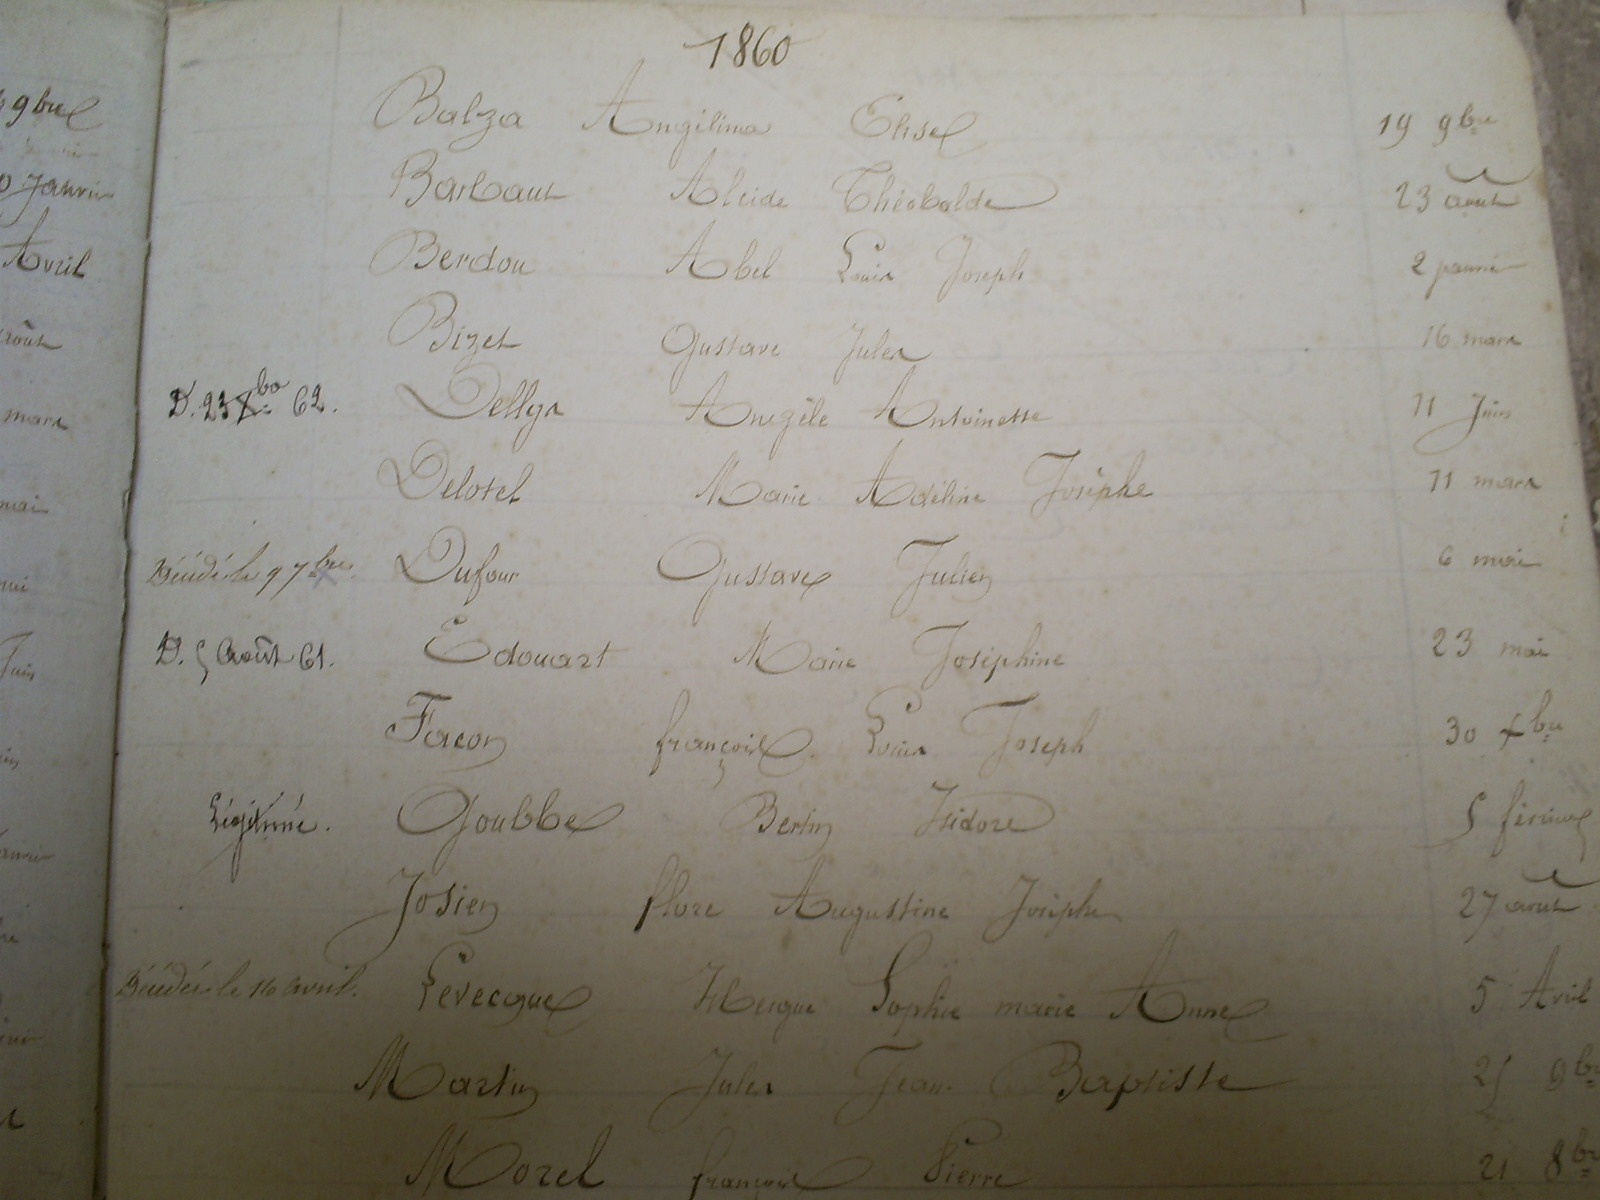 1860
9bre
Balza Angélina Elise 19 9bre
Janvier
Barbaut Alcide Théobalde 23 août
Avril
Berdou Abel Louis Joseph 2 janvier
août
Bizet Gustave Jules 16 mars
mars
D. 23 Xbre 62. Dellys Angèle Antoinette 11 Juin
mai
Delotel Marie Adéline Josèphe 11 mars
Décédé le 9 7bre Dufour Gustave Julien 6 mai
Juin
D. 5 Août 61. Edouart Marie Joséphine 23 mai
Facon françois Louis Joseph 30 Xbre
Légitimé. Goubbe Bertin Isidore 5 février
Josien flore Augustine Josèphe 27 août
Décédée le 16 avril. Levecque Sophie marie Anne 5 Avril
Martin Jules Jean Baptiste 25 9bre
Morel françois Pierre 21 8bre